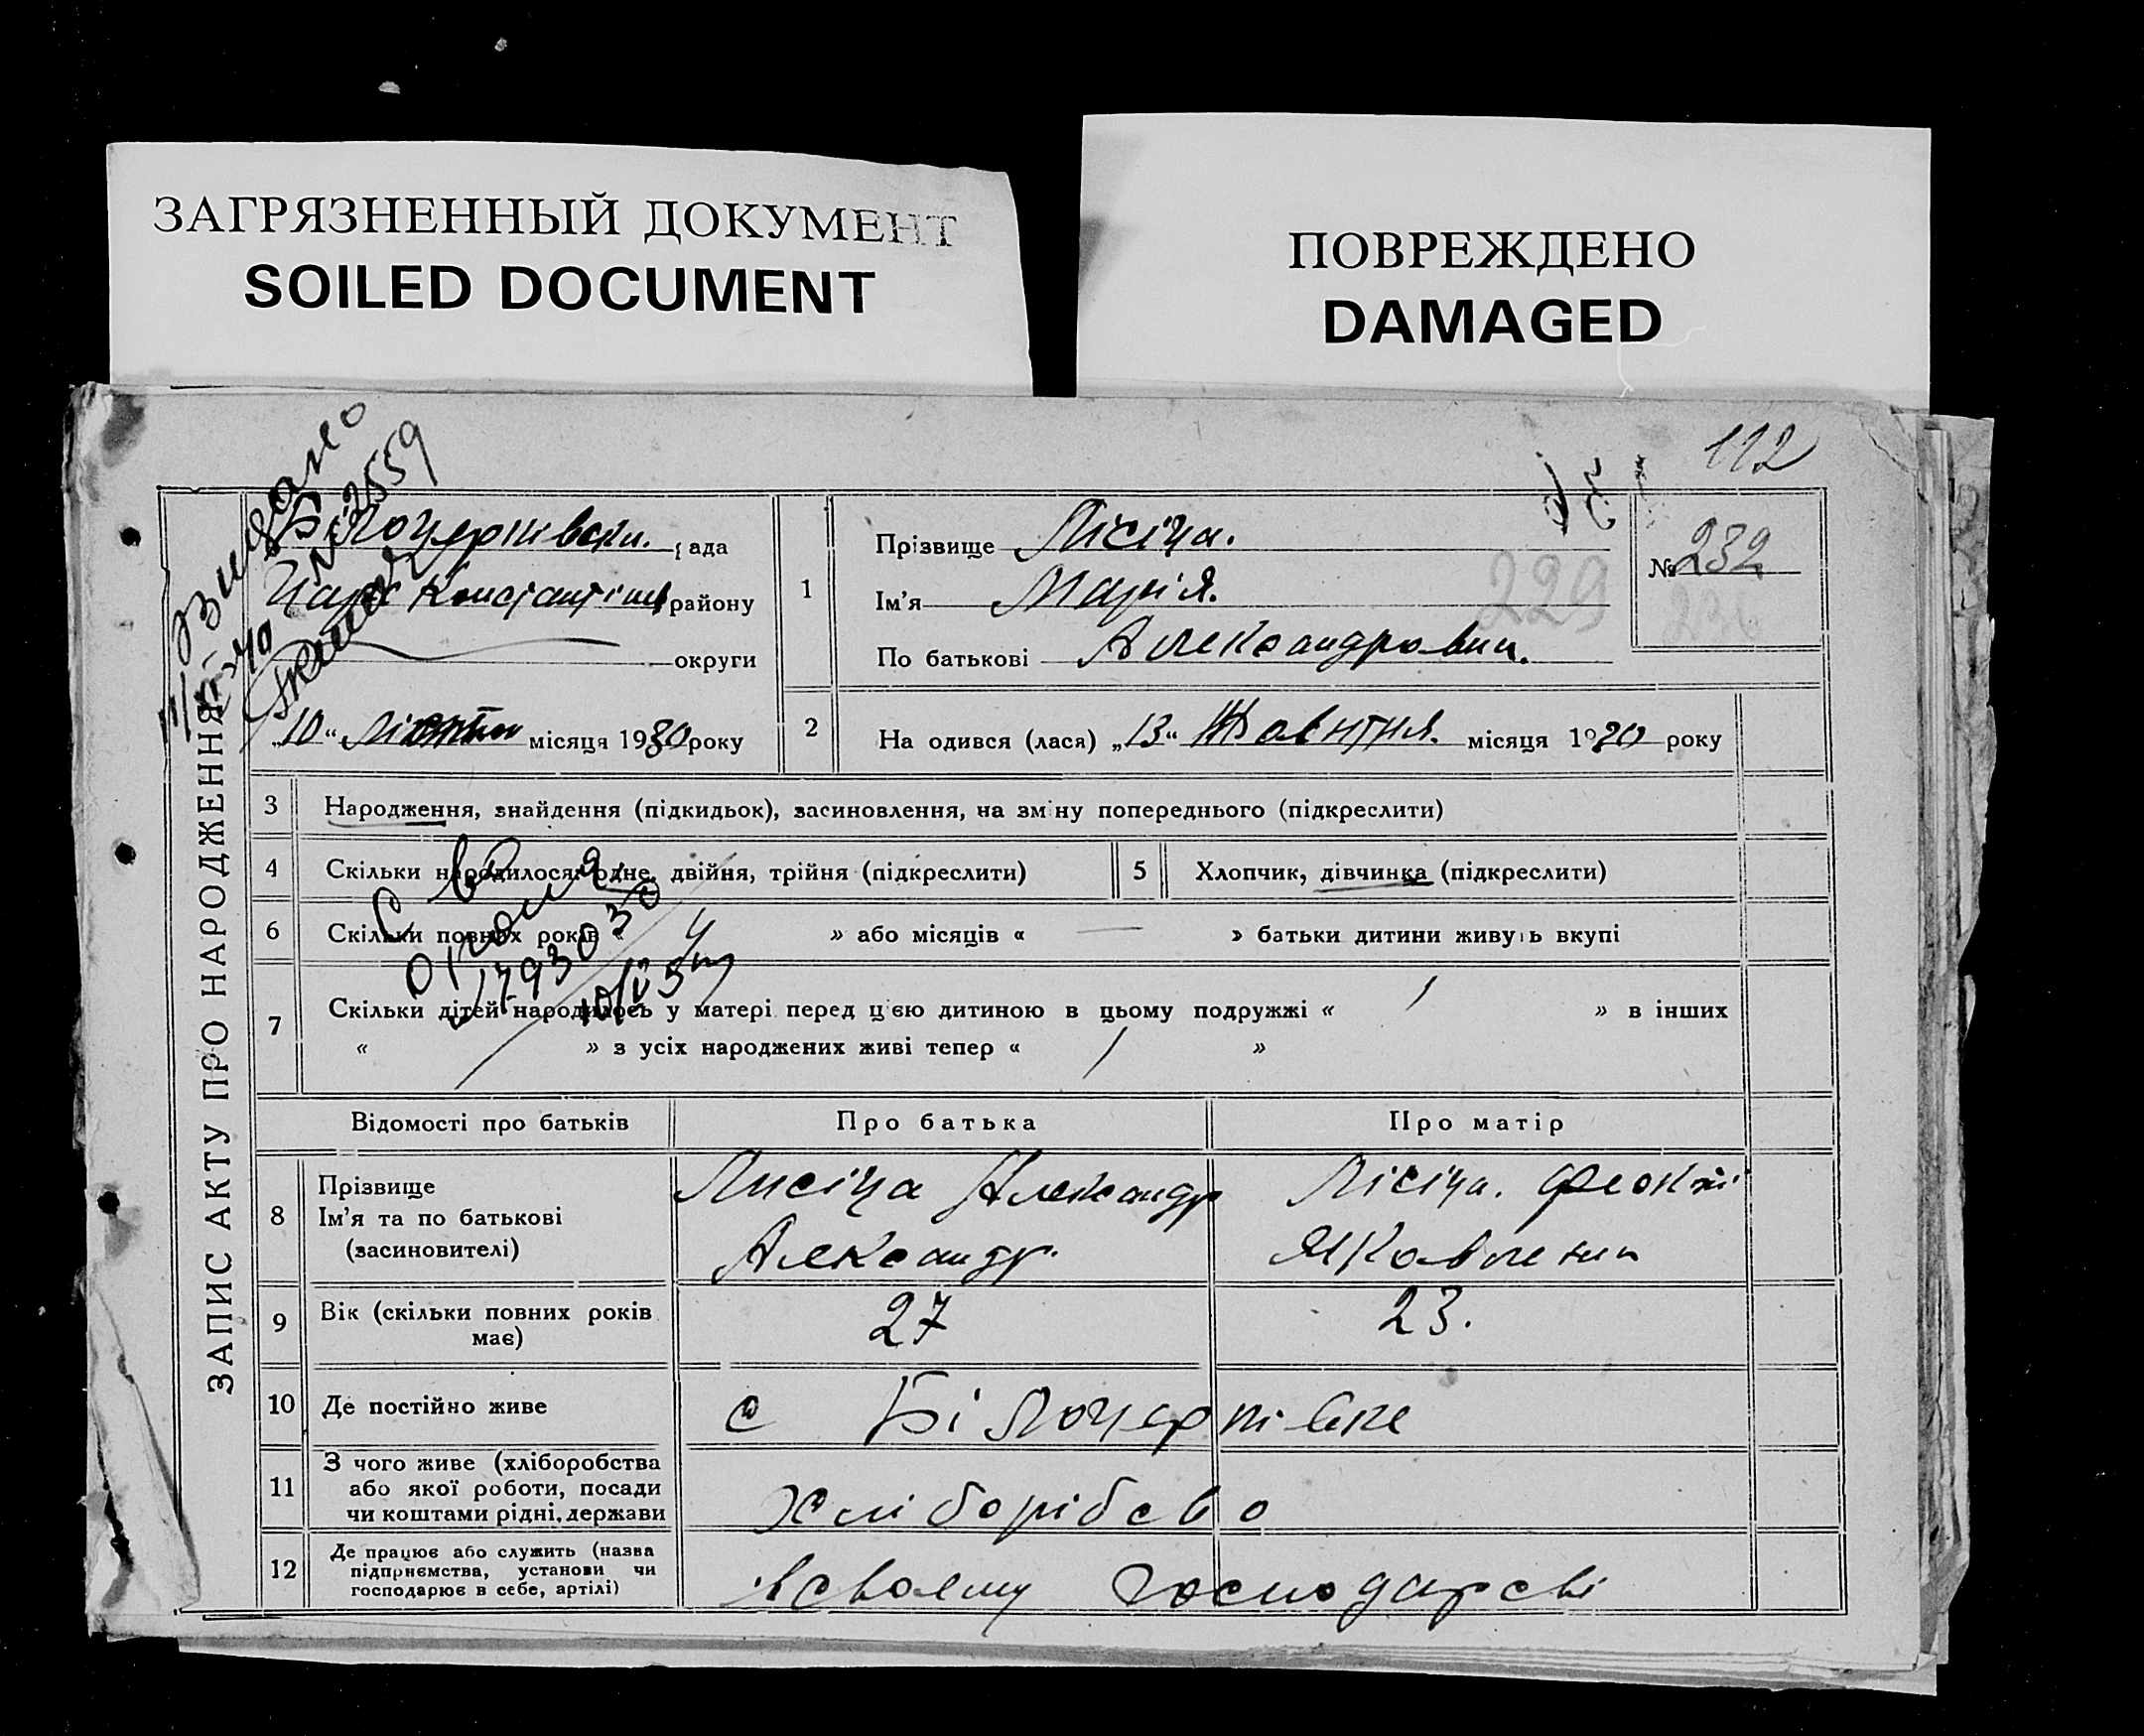 ЗАГРЯЗНЕННЫЙ ДОКУМЕНТ
SOILED DOCUMENT
ПОВРЕЖДЕНО
DAMAGED
112
ЗАПИС АКТУ ПРО НАРОДЖЕННЯ
Видано
№ 2559
Білоцерківськ. рада
Царе Констянтінів району
округи
„10“ місяця 1930 року
1
Прізвище Лісіца.
Ім'я Марія.
По батькові Александровни.
№ 232
229
2
На одився (лася) „13“ Жовтня. місяця 1920 року
3 Народження, знайдення (підкидьок), засиновлення, на зміну попереднього (підкреслити)
4 Скільки народилося: одне, двійня, трійня (підкреслити)
5 Хлопчик, дівчинка (підкреслити)
6 Скільки повних років « 4 » або місяців « — » батьки дитини живуть вкупі
7 Скільки дітей народилось у матері перед цією дитиною в цьому подружжі « / » в інших
« » з усіх народжених живі тепер « / »
Відомості про батьків Про батька Про матір
8 Прізвище
Ім'я та по батькові
(засиновителі)
Лисіца Александр
Александр.
Лісіца.
Яковлевни
9 Вік (скільки повних років
має)
27 23.
10 Де постійно живе с Білоцерківке
11 З чого живе (хліборобства
або якої роботи, посади
чи коштами рідні, держави
Хліборібсво
12 Де працює або служить (назва
підприємства, установи чи
господарює в себе, артілі)
в своєму господарсві